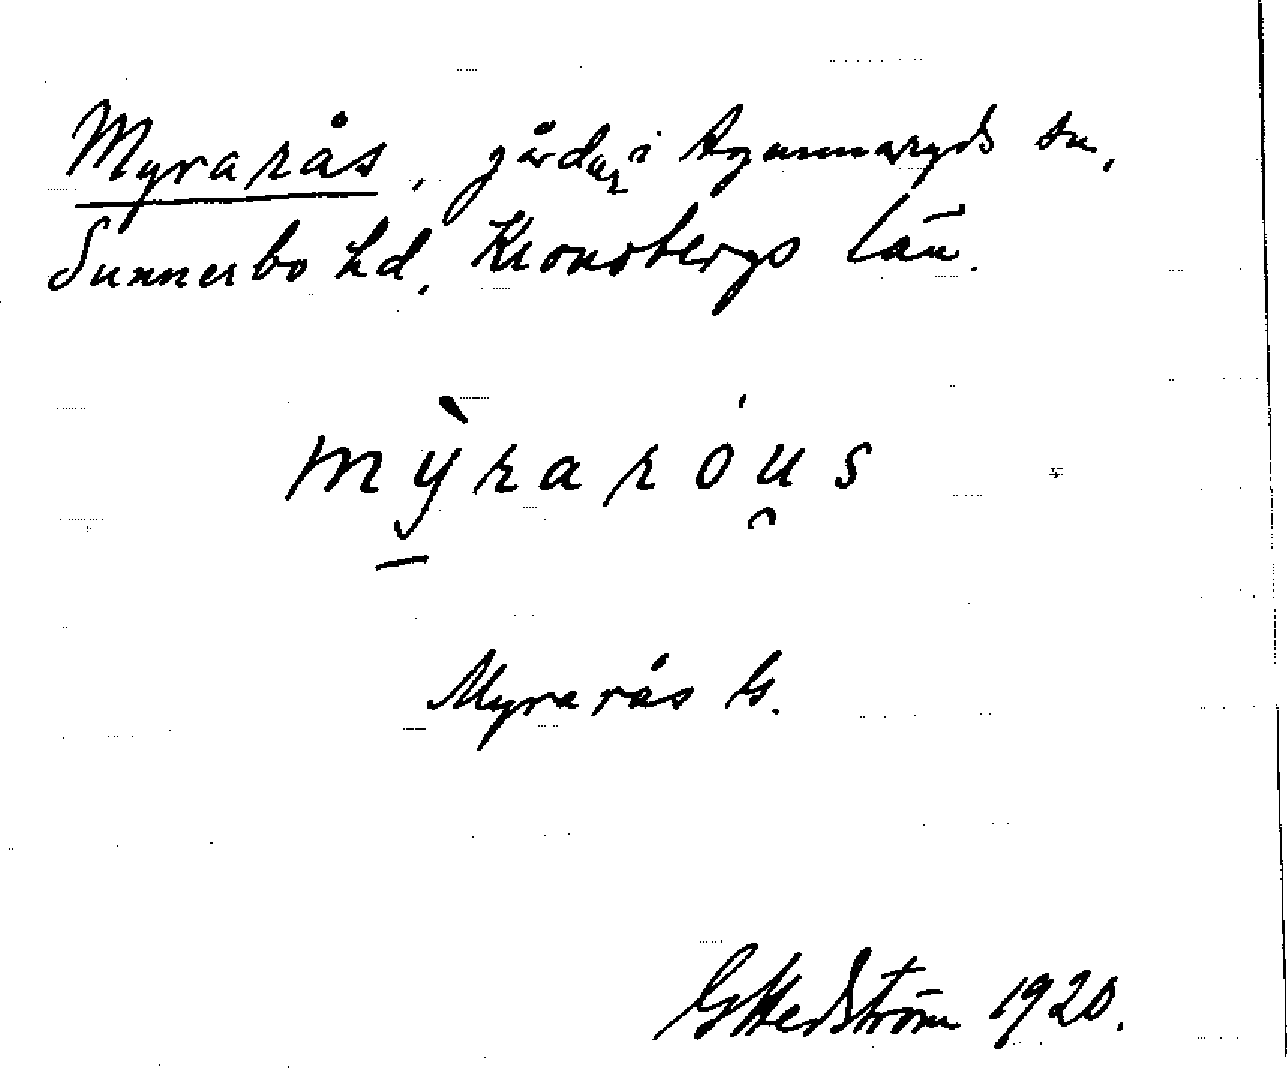 Myrarås, gårdar i Agunnaryds sn,
Sunnerbo hd, Kronobergs län.
mỳraróu̯s
Myrarås G.
G Hedström 1920.